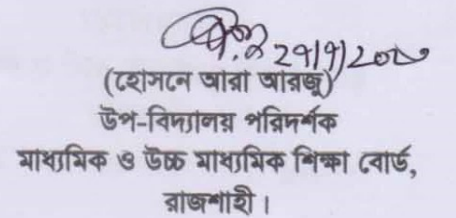 (হোসনে আরা আরজু)
উপ-বিদ্যালয় পরিদর্শক
মাধ্যমিক ও উচ্চ মাধ্যমিক শিক্ষা বোর্ড,
রাজশাহী।